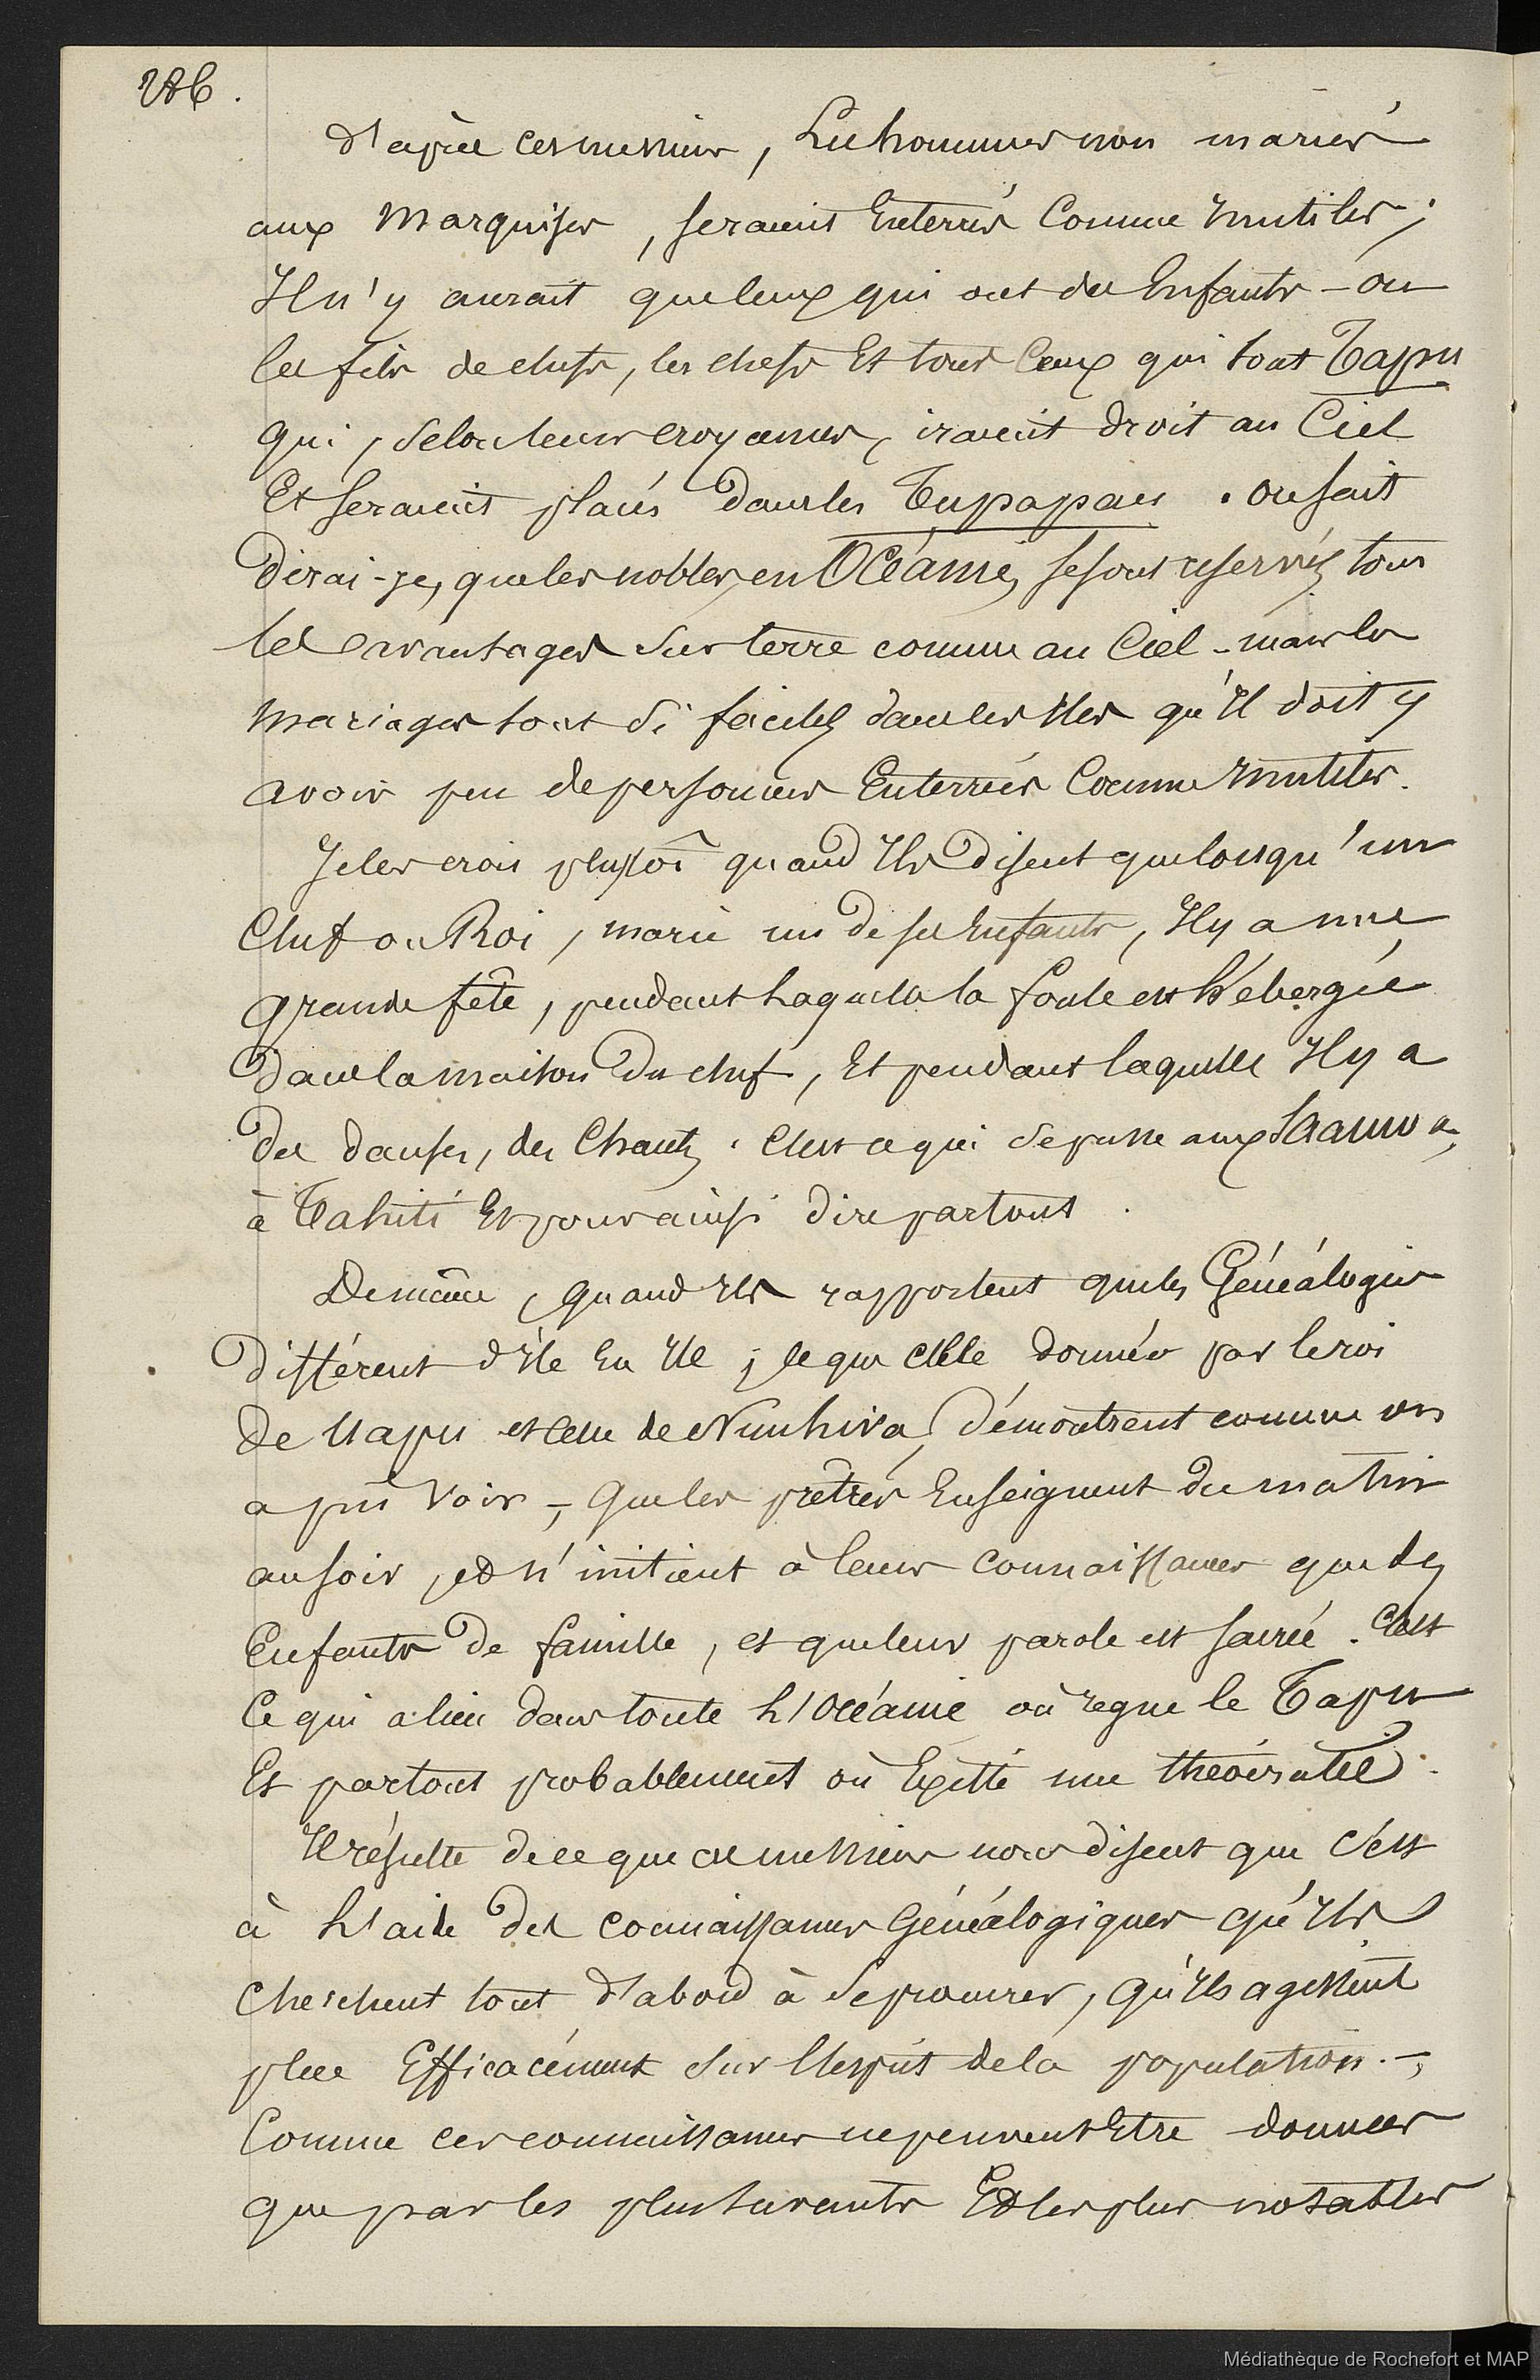 d'après ces messieurs, Les hommes non mariés
aux Marquises, seraient Enterrés Comme Inutiles;
Il n'y aurait que ceux qui ont des Enfants – ou
les fils de chefs, les chefs Et tous Ceux qui sont Tapu
qui, selon leurs croyances, iraient droit au Ciel
Et seraient placés dans les Tupapaus. On sait
dirai-je, que les nobles, en Océanie, se sont reservés tous
les avantages sur terre comme au Ciel – mais les
mariages sont si faciles dans les Iles qu'Il doit y
avoir peu de personnes Enterrées Comme Inutiles.
Je les crois plustôt quand Ils disent que lorsqu'un
Chef ou Roi, marie un de ses Enfants, Il y a une
grande fête, pendant Laquelle la foule est hébergée
dans la maison du chef, Et pendant laquelle Il y a
des danses, des Chants. C'est ce qui se passe aux Samoa,
à Tahiti Et pour ainsi dire partout.
De même, quand Ils rapportent que les Généalogies
différent d'Ile En Ile; et que celle donnée par le roi
de Uapu et celle de Nuuhiva, démontrent comme on
a pu voir –, que les prêtres Enseignent du matin
au soir, et n'initient à leurs connaissances que des
Enfants de famille, et que leur parole est sacrée. C'est
Ce qui a lieu dans toute L'Océanie où regne le Tapu
Et partout probablement où Existe une théocratie.
Il résulte de ce que ces messieurs nous disent que C'est
à L'aide des connaissances Généalogiques qu'Ils
cherchent tout d'abord à se procurer, qu'Ils agissent
plus Efficacément sur l'Esprit de la population. –;
Comme ces connaissances ne peuvent Etre données
que par les plus savants Et les plus notables
Médiathèque de Rochefort et MAP